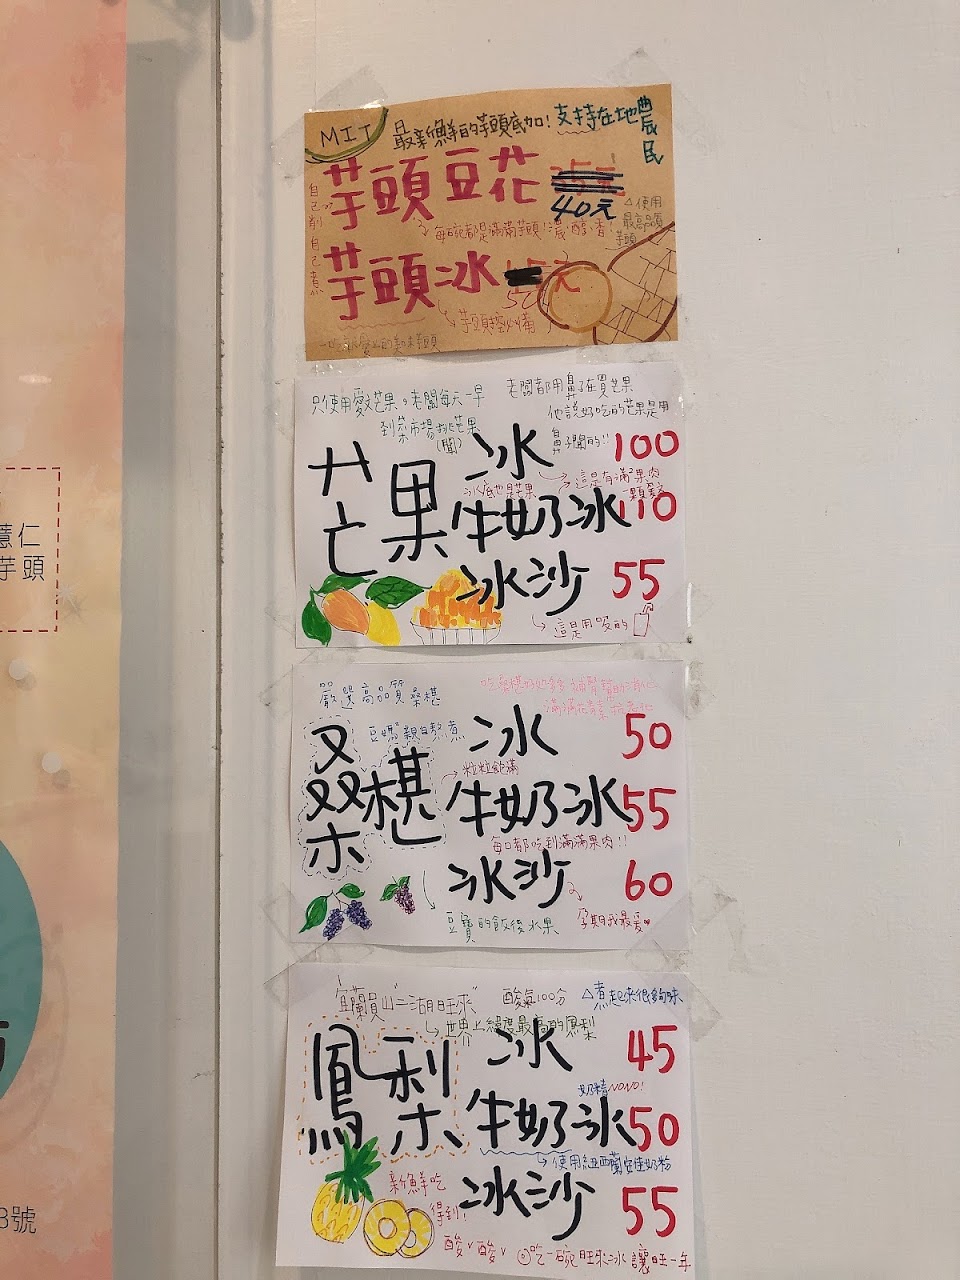 MIT
最新鮮的芋頭底加!
支持在地農民
芋頭豆花
40元
自己削
自己煮
每碗都是滿滿芋頭!濃、醇、香!
△使用
最高品質
芋頭
芋頭冰
50
元
芋頭控必備
只使用愛文芒果。老闆每天一早
到菜市場挑芒果
(聞)
老闆都用鼻子在買芒果
他說好吃的芒果是用
鼻子聞的!!
芒果
冰 100
這是有滿2果肉
冰底也是芒果
牛奶冰 110
冰沙 55
這是用吸的
嚴選高品質桑椹
豆媽親自熬煮
桑椹
冰 50
粒粒飽滿
牛奶冰 55
每口都吃到滿滿果肉!!
冰沙 60
豆寶的飯後水果
孕期我最愛♥
宜蘭員山"二湖旺來"
酸氣100分
△煮起來很夠味
世界上緯度最高的鳳梨
鳳梨
冰 45
奶精NONO!
牛奶冰 50
使用紐西蘭安佳奶粉
冰沙 55
新鮮吃
得到!
酸v酸v
吃一碗旺來冰讓旺一年
薏仁
芋頭
3號